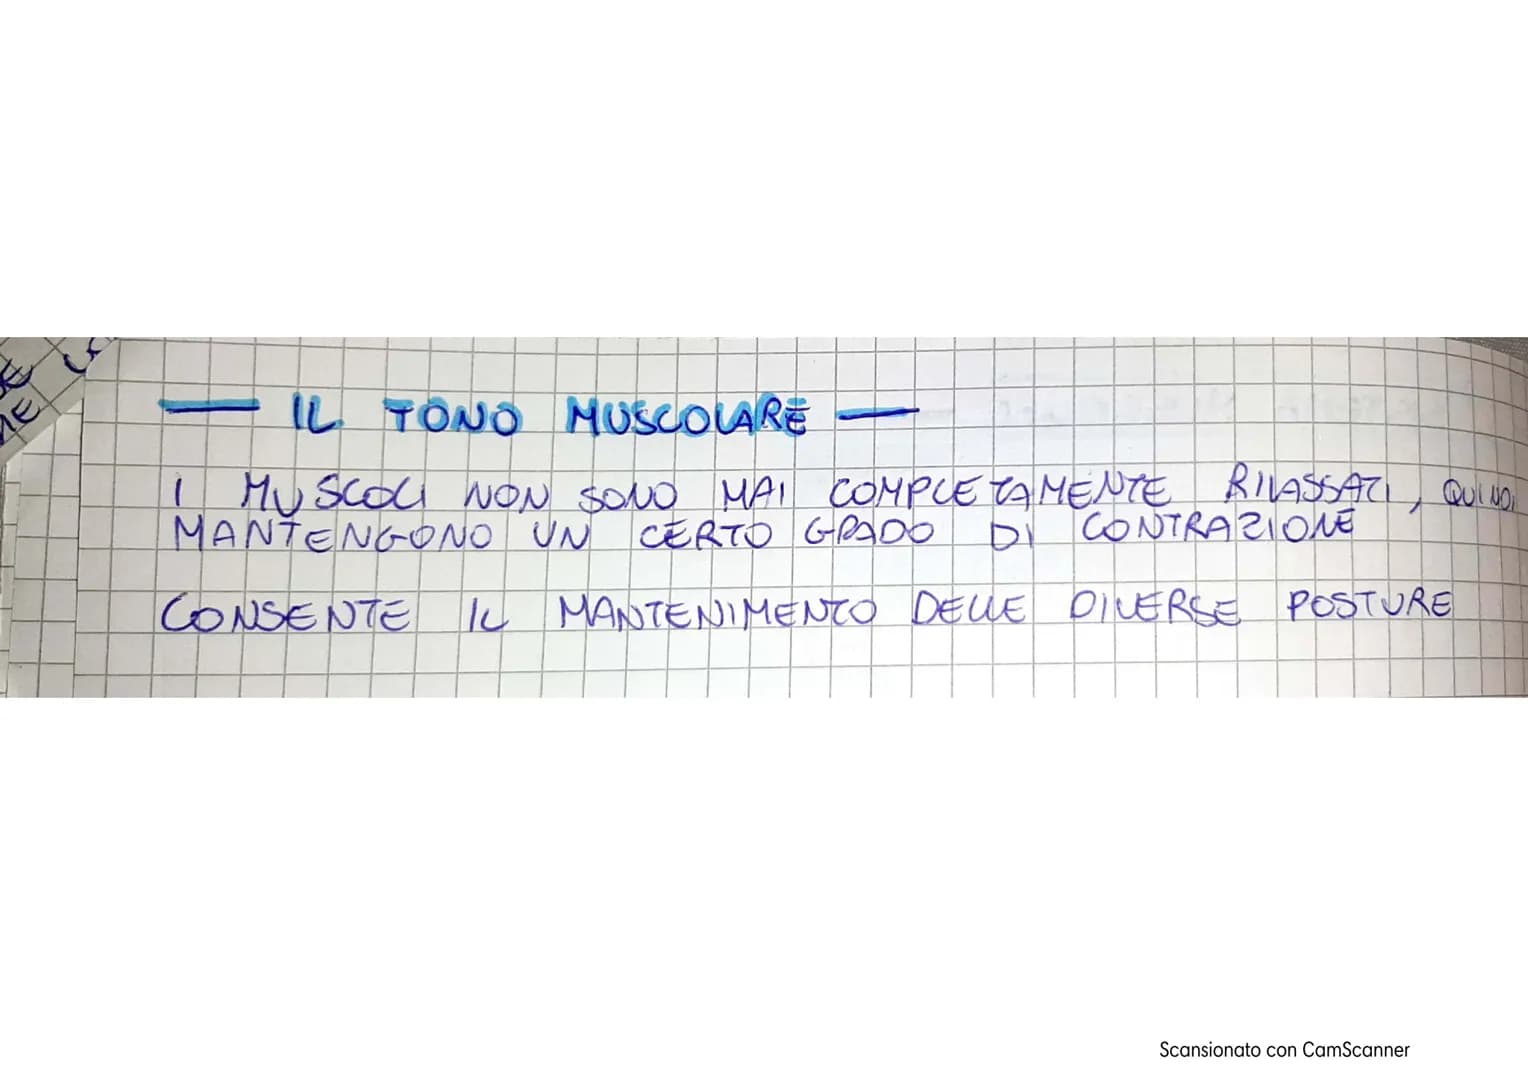 — IL TONO MUSCOLARE —
I MUSCOLI NON SONO MAI COMPLETAMENTE RILASSATI, QUINDI
MANTENGONO UN CERTO GRADO DI CONTRAZIONE
CONSENTE IL MANTENIMENTO DELLE DIVERSE POSTURE
Scansionato con CamScanner